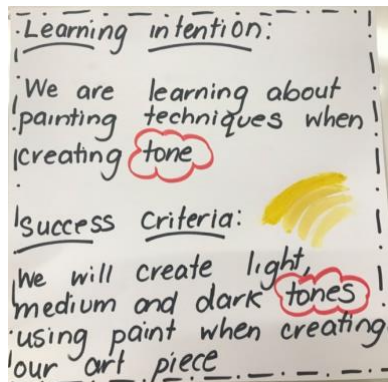 Learning intention:
We are learning about
painting techniques when
creating tone
Success Criteria:
We will create light,
medium and dark tones
using paint when creating
our art piece